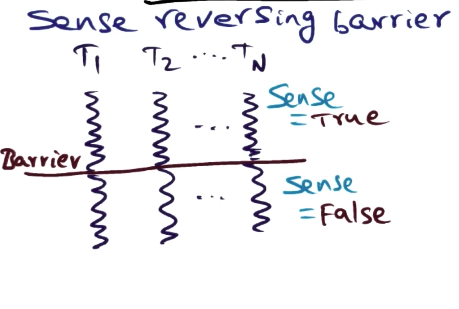 Sense reversing barrier
T1 T2 .... TN
Sense
= True
...
Barrier
Sense
= False
...